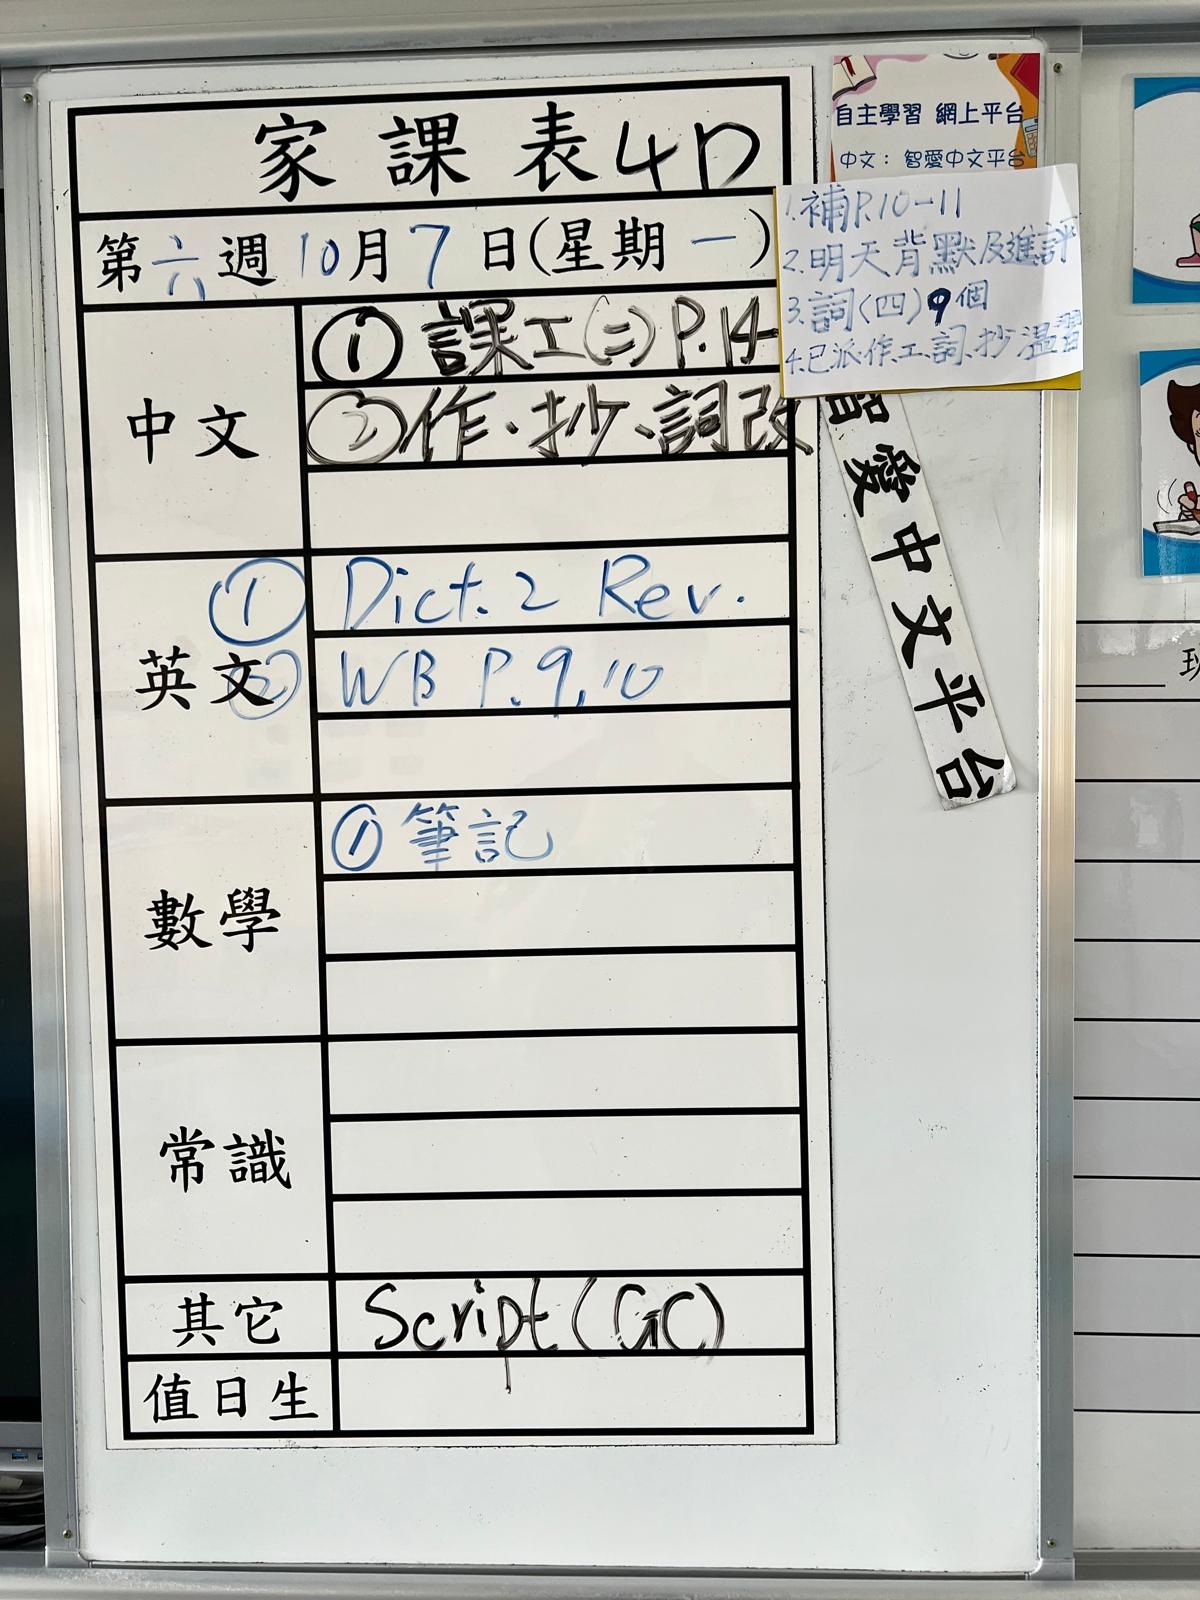 家課表 4D
第六週 10月7日(星期一)
中文
① 課工(二) P.14
② 作、抄、詞改
英文
① Dict. 2 Rev.
② WB P.9,10
數學
① 筆記
常識
其它
Script (GC)
值日生
自主學習 網上平台
中文：智愛中文平台
1.補P.10-11
2.明天背默及進評
3.詞(四)9個
4.已派作.工.詞.抄溫習
智愛中文平台